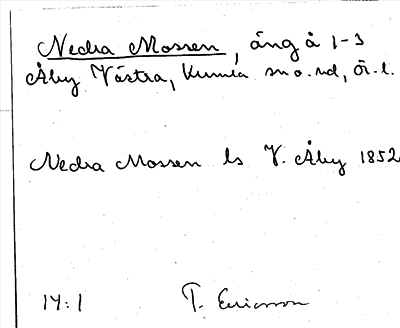 Nedra Mossen, äng å 1-3
Åby Västra, Kumla sn o. hd, ör. l.
Nedra Mossen ls V. Åby 1852
14:1 T. Ericsson